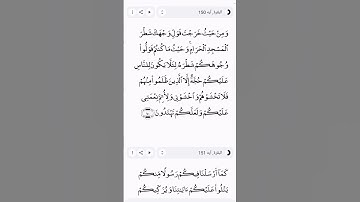 البقرة، آية 150
وَمِنْ حَيْثُ خَرَجْتَ فَوَلِّ وَجْهَكَ شَطْرَ
ٱلْمَسْجِدِ ٱلْحَرَامِ ۚ وَحَيْثُ مَا كُنتُمْ فَوَلُّوا۟
وُجُوهَكُمْ شَطْرَهُۥ لِئَلَّا يَكُونَ لِلنَّاسِ
عَلَيْكُمْ حُجَّةٌ إِلَّا ٱلَّذِينَ ظَلَمُوا۟ مِنْهُمْ
فَلَا تَخْشَوْهُمْ وَٱخْشَوْنِى وَلِأُتِمَّ نِعْمَتِى
عَلَيْكُمْ وَلَعَلَّكُمْ تَهْتَدُونَ ١٥٠
البقرة، آية 151
كَمَآ أَرْسَلْنَا فِيكُمْ رَسُولًا مِّنكُمْ
يَتْلُوا۟ عَلَيْكُمْ ءَايَـٰتِنَا وَيُزَكِّيكُمْ